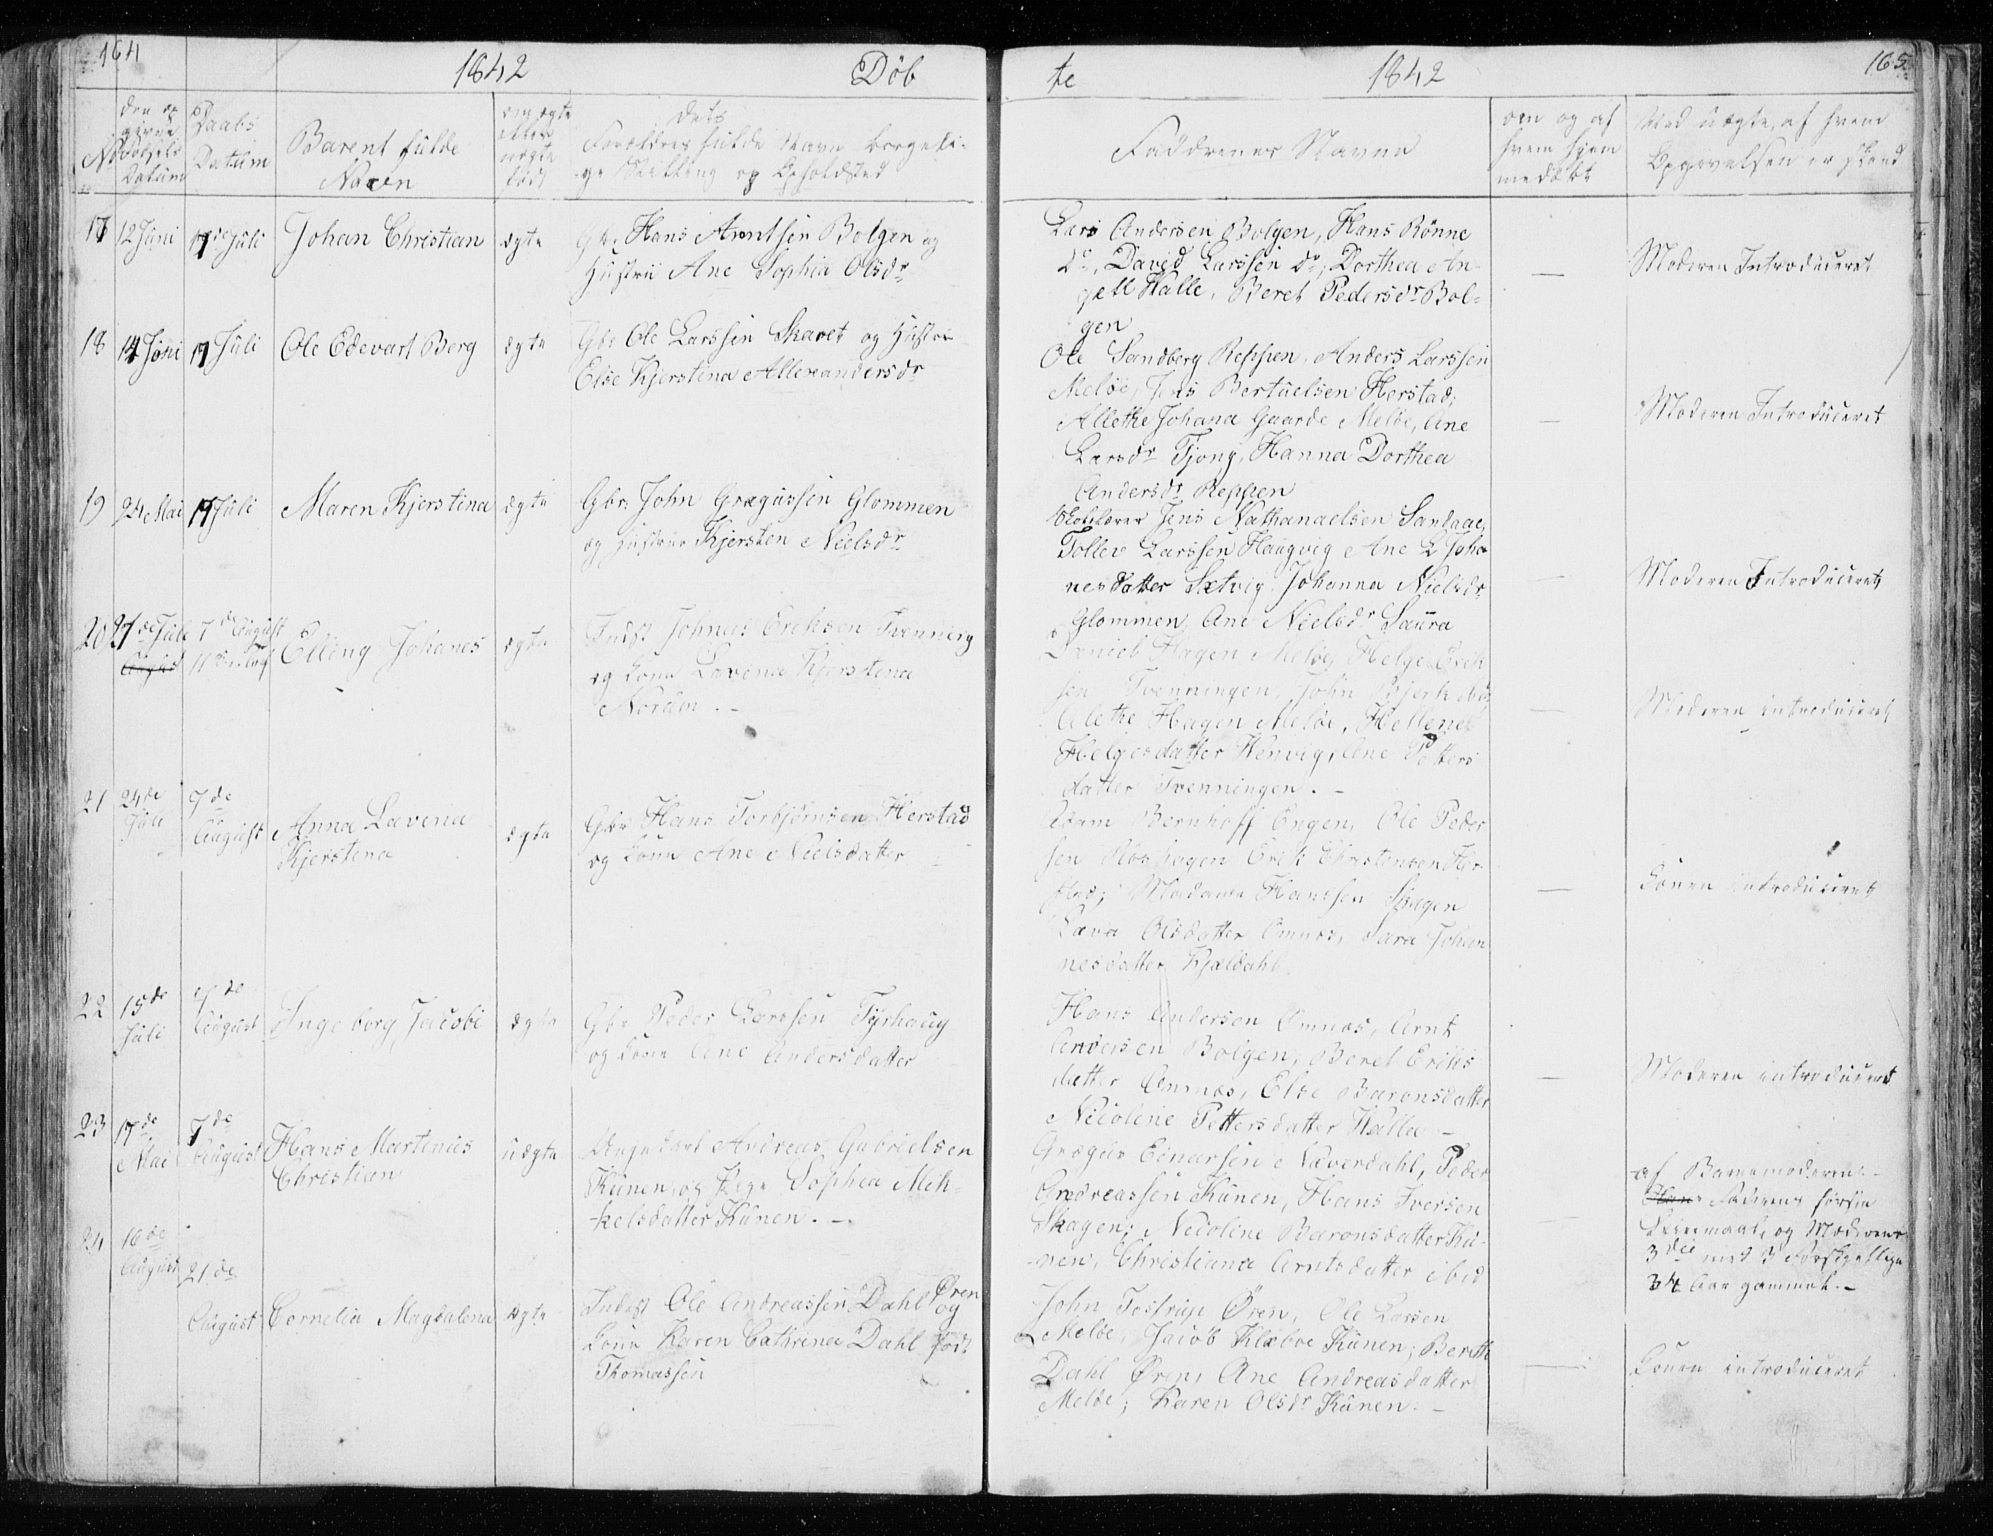 164
1842
Døb
No
den op
givne
Fødsels
Datum
Daabs
Datum
Barnets fulde
Navn
om ægte
eller
uægte
født
dets
Forældres fulde Navn borgeli-
ge Stilling og Opholdsted
17
12 Juni
17de Juli
Johan Christian
ægte
Gbr. Hans Arentsen Bolgen og
Hustru Ane Sophia Olsdr
18
14 Juni
17 Juli
Ole Edevart Berg
ægte
Gbr Ole Larssen Skavet og Hustru
Else Kjerstina Allexandersdr
19
24 Mai
17 Juli
Maren Kjerstina
ægte
Gbr: John Grægussen Glommen
og Hustrue Kjersten Nielsdr
20
27de Juli
7de August
Elling Johanes
ægte
Indst Johnas Eriksen Tvenning
og Kone Lavena Kjerstina
21
24de
Juli
7de
August
Anna Lavina
Kjerstina
ægte
Gbr Hans Torbjørnsen Herstad
og Kone Ane Nielsdatter
22
15de
Juli
7de
August
Ingeborg Jacobi
ægte
Gbr Peder Larssen Tyrhaug
og Kone Ane Andersdatter
23
17de
Mai
7de
August
Hans Martinus
Christian
uægte
Ungkarl Andreas Gabrielsen
Kunen og Pige Sophia Mik-
kelsdatter Kunen. -
24
16de
August
21de
August
Cornelia Magdalena
ægte
Indst Ole Andreassen Dahl Øren
og
Kone Karen Cathrina Dahl født
Thomassen
te
1842
165
Faddrenes Navne
om og af
hvem hjem
medøbt
Ved uægte, af hvem
Opgivelsen er skeed
Lars Andersen Bolgen, Hans Rønne
do, David Larssen do, Dorthea An-
gell Halle, Beret Pedersdr Bol-
gen
—
Moderen Introduceret
Ole Sandberg Reppen, Anders Larssen
Meløe, Jens Bertuelsen Herstad,
Allethe Johana Gaarde Meløe, Ane
Larsdr Tjong, Hanna Dorthea
Andersdr Reppen
—
Moderen Introduceret
Skolelærer Jens Nathanaelsen Sandaae,
Tollev Larssen Haugvig Ane L Joha
nesdatter Sætvig Johanna Nielsdr
Glommen, Ane Nielsdr Saura
—
Moderen Introduceret
Hagen Meløe, Helge Erik
sen Tvenningen, John
Alethe Hagen Meløe, Hellene
Helgesdatter Wenvig, Ane Petters
datter Tvenningen. -
—
Moderen introduceret
Bernhoff Engen, Ole Peder
sen Erik Christensen Her-
stad; Madame Hansen Skagen
Olsdatter Omnes, Sara Johan
nesdatter Kjeldahl
—
Konen introduceret
Hans Andersen Omnes, Arnt
Andersen Bolgen, Beret Eriks
datter Omnes, Else Baronsdatter
Nicoline Pettersdatter Halle -
—
Moderen introduceret
Grægus Einarsen Neverdahl, Peder
Andreassen Kunen, Hans Iversen
Skagen; Nicoline Baronsdatter Ku-
nen, Christiana Arntsdatter ibid
af Barnemoderen. -
Faderens første
Leiermaal, og Moderens
3die med 3 forskjellige
34 Aar gammel. -
John Tostrup Øren, Ole Larsen
Meløe, Jacob Klæboe Kunen; Berethe
Dahl Øren, Ane Andreasdatter
Meløe; Karen Olsdr Kunen. -
—
Konen introduceret